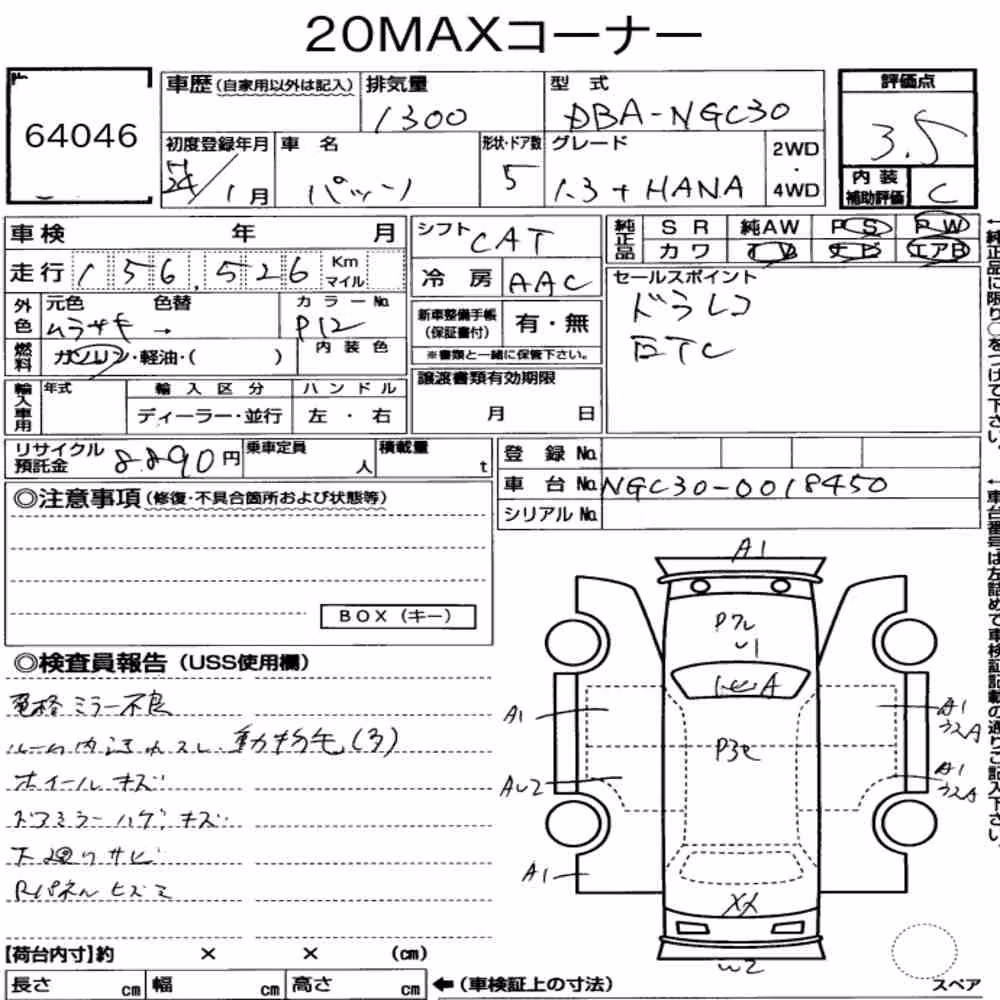 20MAXコーナー
64046
車歴(自家用以外は記入)
排気量
1300
型 式
DBA-NGC30
評価点
3.5
初度登録年月
H24/1月
車 名
パッソ
形状・ドア数
5
グレード
1.3+HANA
2WD
・
4WD
内 装
補助評価
C
車検 年 月
シフト
CAT
純正品
S R 純AW P S P W
カ ワ T V ナビ エアB
走行 156,526 Km
マイル
冷 房
AAC
セールスポイント
ドラレコ
ETC
外色
元色 色替
ムラサキ →
カラーNo.
P12
新車整備手帳
(保証書付)
有・無
※書類と一緒に保管下さい。
燃料
ガソリン・軽油・( )
内 装 色
譲渡書類有効期限
月 日
輸入車用
年式
輸 入 区 分
ハ ン ド ル
ディーラー・並行
左 ・ 右
リサイクル
預託金
8.890円
乗車定員
人
積載量
t
登 録 No.
車 台 No.
NGC30-0018450
シリアル No.
◎注意事項(修復・不具合箇所および状態等)
BOX(キー)
◎検査員報告(USS使用欄)
電格ミラー不良
ルーム内汚れスレ 動物毛(3)
ホイールキズ
ドアミラーハゲ、キズ
下廻りサビ
Rパネルヒズミ
A1
U1
A1
AU2
A1
A1
A1
XX
W2
【荷台内寸】約 × × (cm)
長さ cm 幅 cm 高さ cm
←(車検証上の寸法)
スペア
←純正品に限り○をつけて下さい。
←車台番号は左詰めで車検証記載の通りご記入下さい。